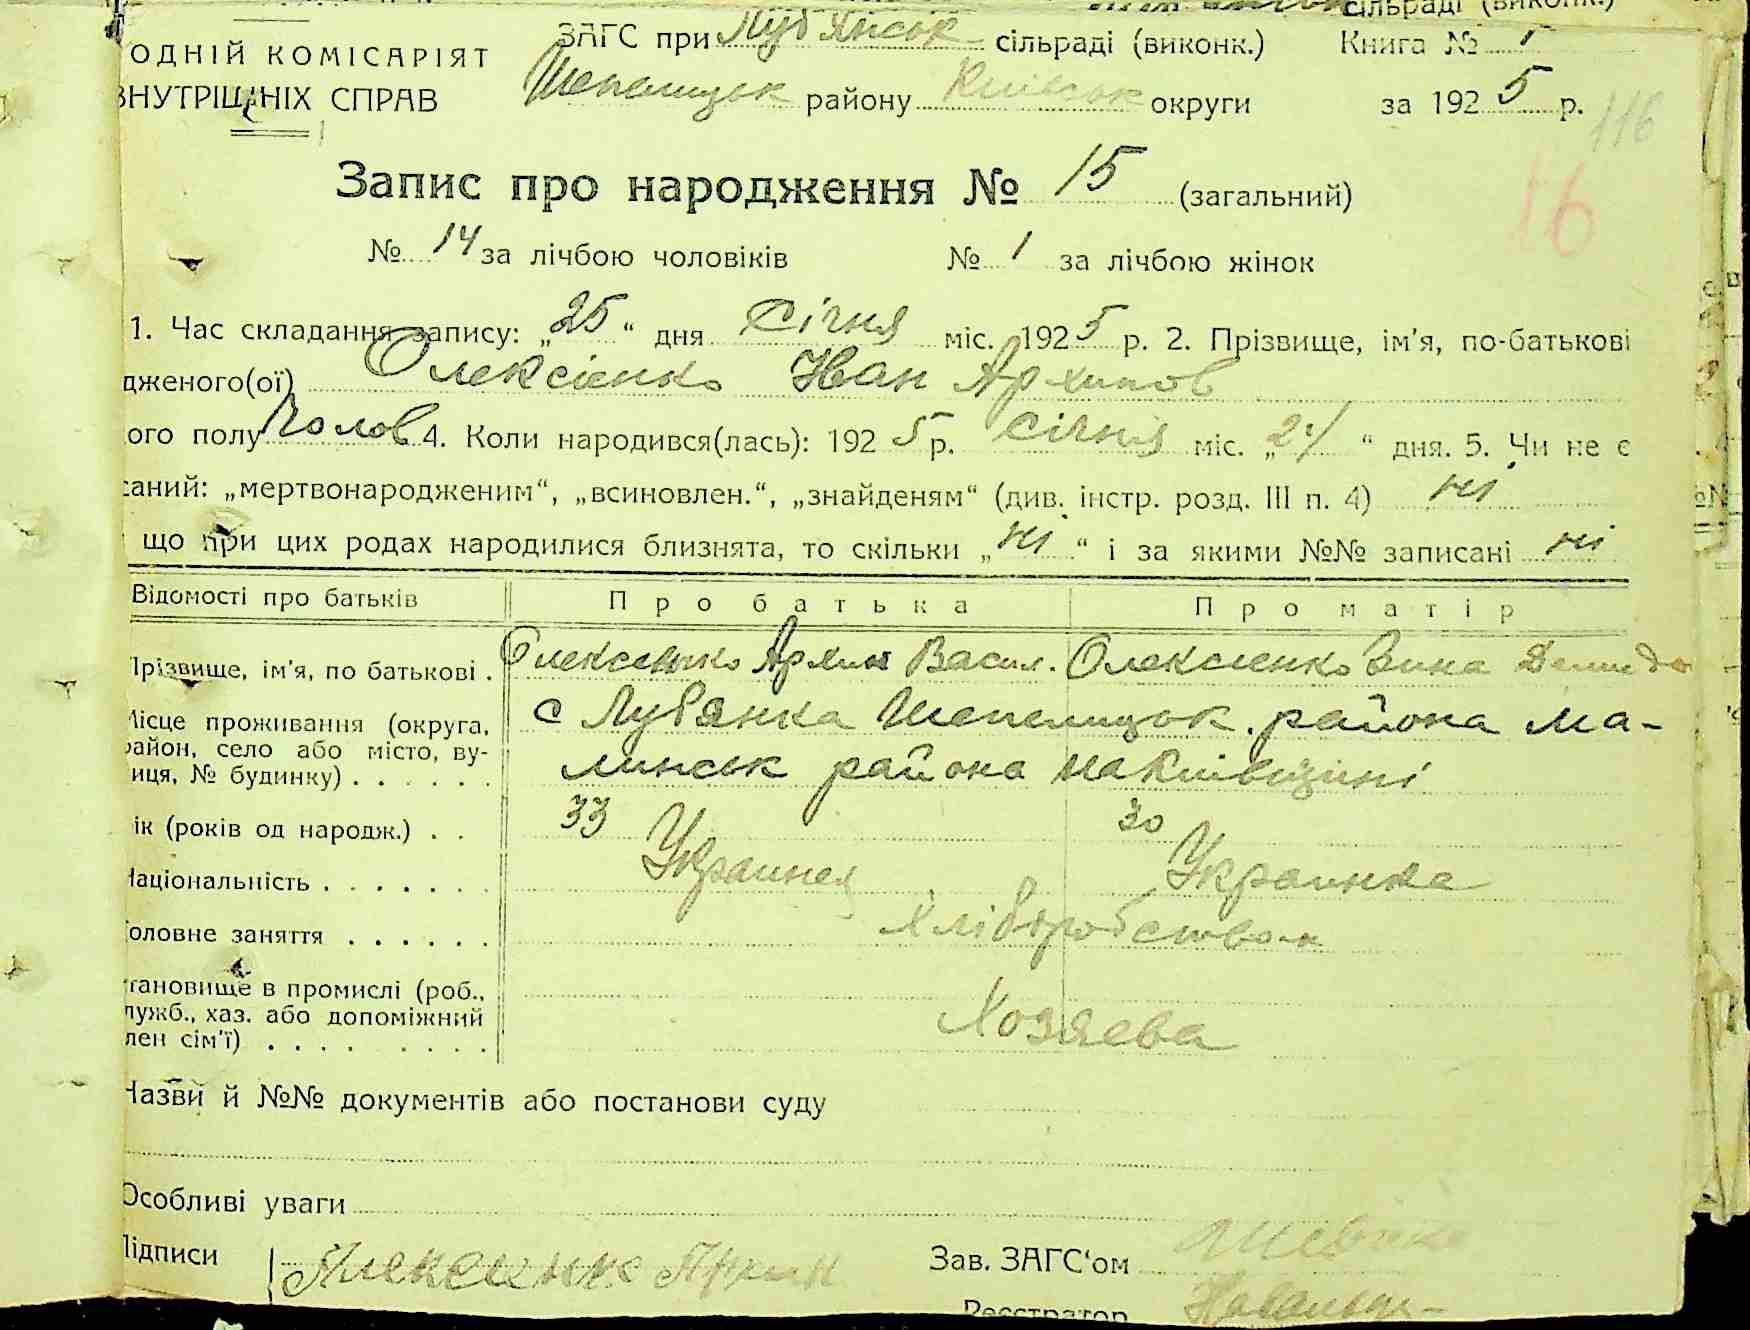 сільраді (виконк.)
ОДНІЙ КОМІСАРІЯТ ЗАГС при Лубянськ сільраді (виконк.) Книга № 1
ВНУТРІШНІХ СПРАВ Шепелицьк району Київськ округи за 1925 р. 116
Запис про народження № 15 (загальний) 16
№ 14 за лічбою чоловіків № 1 за лічбою жінок
1. Час складання запису: „25“ дня Січня міс. 1925 р. 2. Прізвище, ім'я, по-батькові
дженого(ої) Олексієнко Іван Архипов
ого полу Чолов 4. Коли народився(лась): 1925 р. Січня міс. „24“ дня. 5. Чи не є
саний: „мертвонародженим“, „всиновлен.“, „знайденям“ (див. інстр. розд. III п. 4) ні
що при цих родах народилися близнята, то скільки „ні“ і за якими №№ записані ні
Відомості про батьків Про батька Про матір
Прізвище, ім'я, по батькові . Олексієнко Архип Васил. Олексієнко Зина Демидо
Місце проживання (округа, с Лубянка Шепелицьк. района Ма-
район, село або місто, ву-
иця, № будинку) . . . . . . линськ района на Київщині
ік (років од народж.) . . 33 30
Національність . . . . . . . Украинец Украинка
Головне заняття . . . . . . Хліборобство
тановище в промислі (роб.,
лужб., хаз. або допоміжний Хозяева
лен сім'ї) . . . . . . . .
Назви й №№ документів або постанови суду
Особливі уваги
Підписи Алексиенко Архип Зав. ЗАГС'ом
Реєстратор